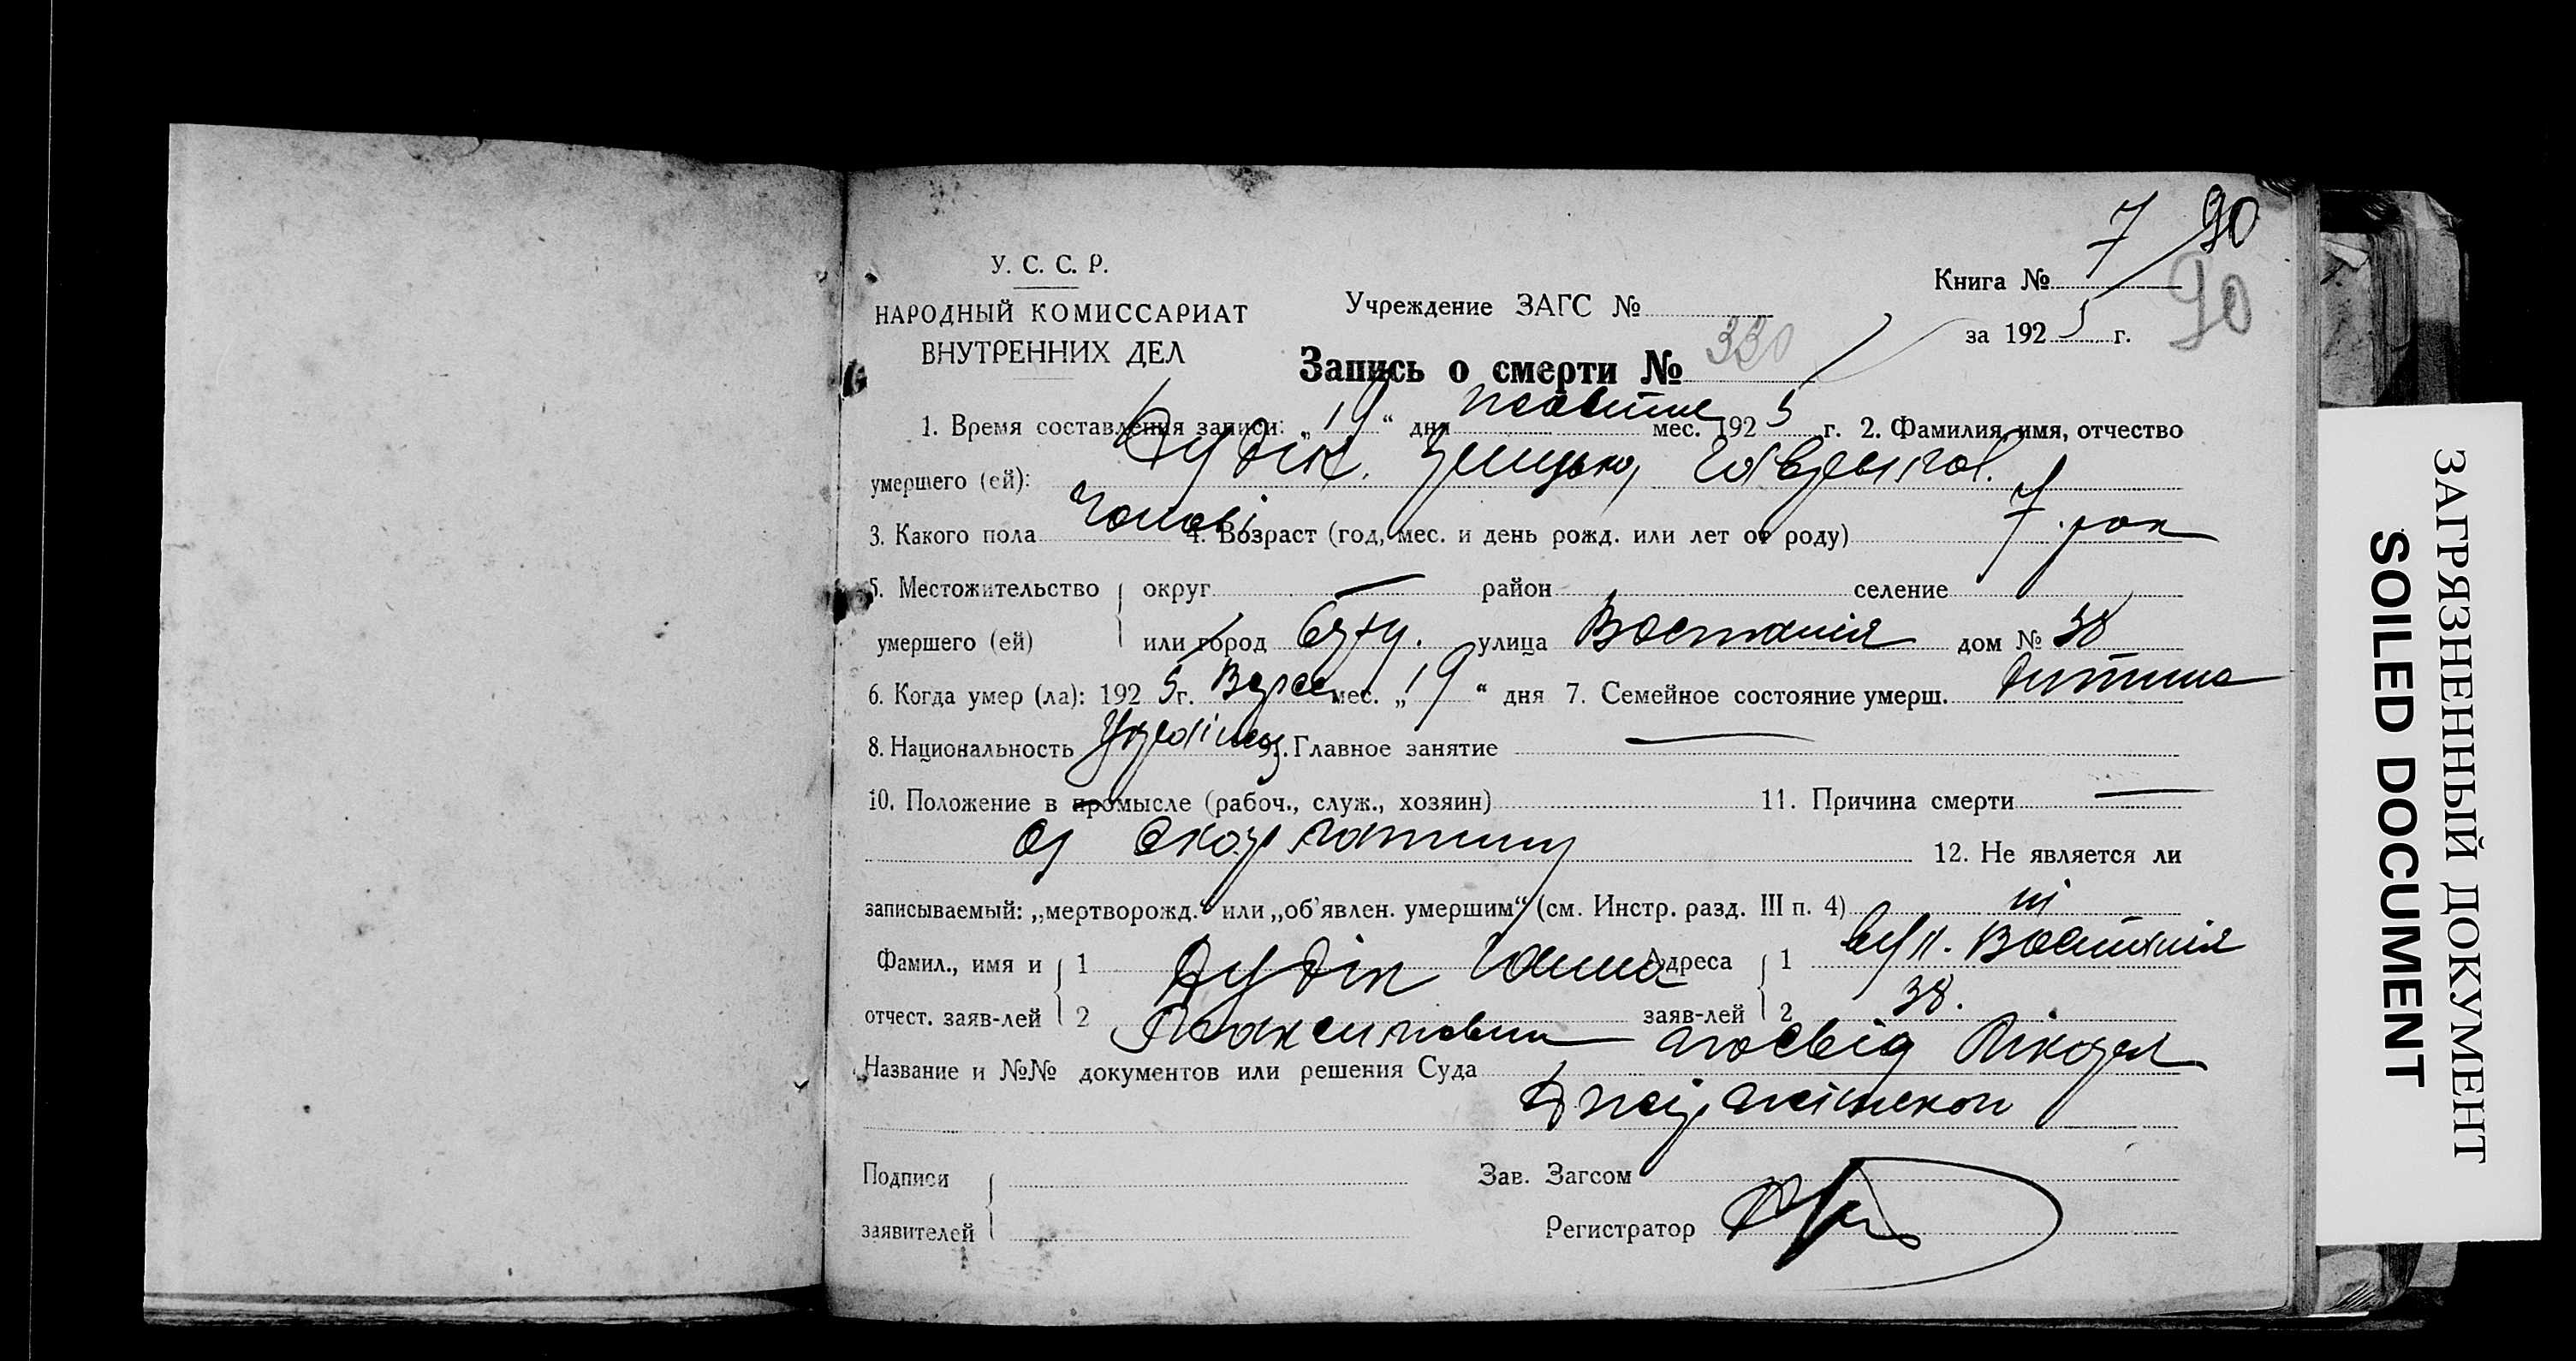 7/90
У. С. С. Р.
Книга №
90
НАРОДНЫЙ КОМИССАРИАТ
ВНУТРЕННИХ ДЕЛ
Учреждение ЗАГС №
за 1925 г.
Запись о смерти № 330
1. Время составления записи: „19“ дня мес. 1925 г. 2. Фамилия, имя, отчество
умершего (ей): Дудік
3. Какого пола Чолові 4. Возраст (год, мес. и день рожд. или лет от роду) 7 рок
5. Местожительство округ — район селение
умершего (ей) или город улица Востания дом № 38
6. Когда умер (ла): 1925 г. Верес мес. „19“ дня 7. Семейное состояние умерш. Дитина
8. Национальность 9. Главное занятие —
10. Положение в промысле (рабоч., служ., хозяин) 11. Причина смерти —
Од скарлатини
12. Не является ли
записываемый: „мертворожд.“ или „об’явлен. умершим“ (см. Инстр. разд. III п. 4) ні
Фамил., имя и 1 Дудік Ганна Адреса 1 вул. Востанія
отчест. заяв-лей 2 Максимовна заяв-лей 2 38.
Название и №№ документов или решения Суда посвід Лікаря
Подписи
заявителей
Зав. Загсом
Регистратор
ЗАГРЯЗНЕННЫЙ ДОКУМЕНТ
SOILED DOCUMENT